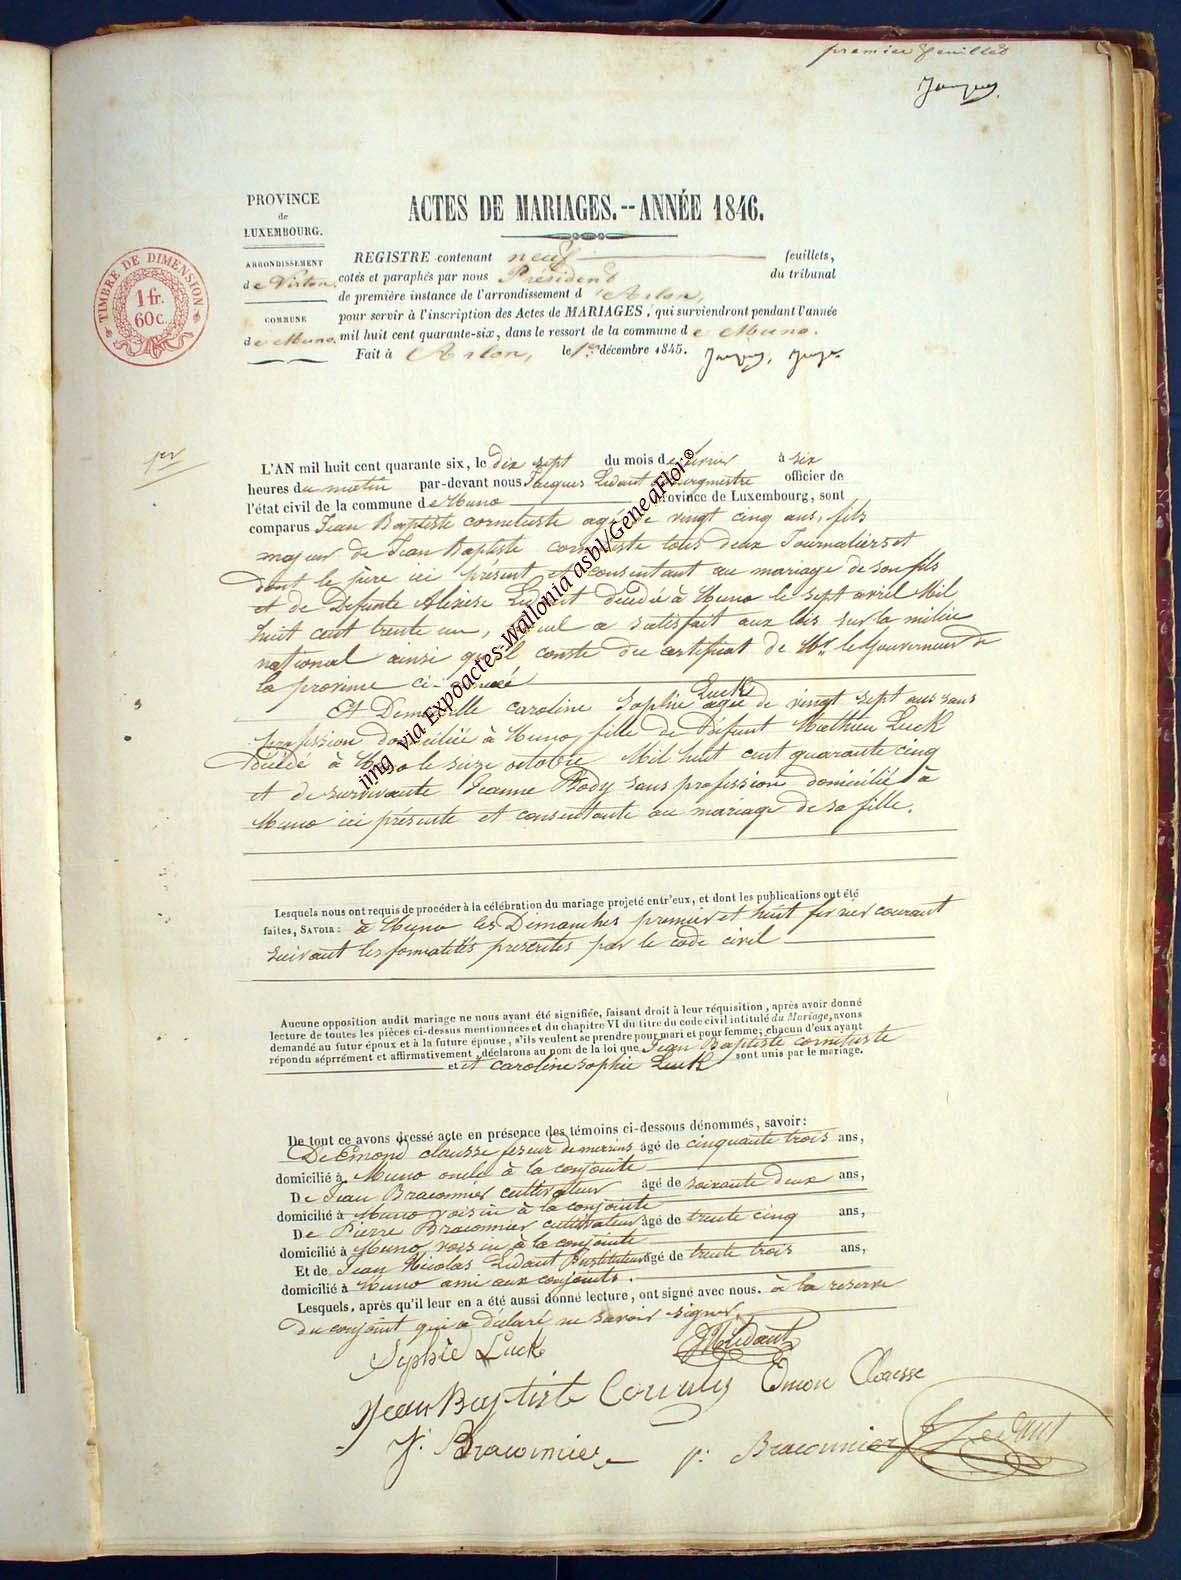 premier feuillet
PROVINCE
de
LUXEMBOURG.
ARRONDISSEMENT
de Virton,
COMMUNE
de Muno.
TIMBRE DE DIMENSION
1 fr.
60 c.
ACTES DE MARIAGES.--ANNÉE 1846.
REGISTRE contenant neuf feuillets,
cotés et paraphés par nous Président du tribunal
de première instance de l'arrondissement d'Arlon,
pour servir à l'inscription des Actes de MARIAGES, qui surviendront pendant l'année
mil huit cent quarante-six, dans le ressort de la commune de Muno.
Fait à Arlon, le 1er décembre 1845.
1er
L'AN mil huit cent quarante six, le dix sept du mois de fevrier à six
heures du matin par-devant nous Jacques Lidaut Bourgmestre officier de
l'état civil de la commune de Muno province de Luxembourg, sont
comparus Jean Baptiste cornituste agé de vingt cinq ans, fils
majeur de Jean Baptiste tous deux Journaliers et
dont le père ici présent et consentant au mariage de son fils
et de Defunte décédée à Muno le sept avril Mil
huit cent trente un, lequel a satisfait aux lois sur la milice
national ainsi qu'il conste du certificat de Mr le Gouverneur de
la province ci-annexé
Et Demoiselle caroline Sophie Luck agée de vingt sept ans sans
profession domiciliée à Muno, fille de Défunt Mathieu Luck
Décédé à Muno le seize octobre Mil huit cent quarante cinq
et de survivante Jeanne Rody sans profession domicilié à
Muno ici présente et consentante au mariage de sa fille.
Lesquels nous ont requis de procéder à la célébration du mariage projeté entr'eux, et dont les publications ont été
faites, SAVOIR: à Muno les Dimanches premier et huit fevrier courant
suivant les formalités prescrites par le code civil
Aucune opposition audit mariage ne nous ayant été signifiée, faisant droit à leur réquisition, après avoir donné
lecture de toutes les pièces ci-dessus mentionnées et du chapitre VI du titre du code civil intitulé du Mariage, avons
demandé au futur époux et à la future épouse, s'ils veulent se prendre pour mari et pour femme; chacun d'eux ayant
répondu séprrément et affirmativement, déclarons au nom de la loi que Jean Baptiste cornituste
et et caroline sophie Luck sont unis par le mariage.
De tout ce avons dressé acte en présence des témoins ci-dessous dénommés, savoir:
De Emond clausse feseur de merrins âgé de cinquante trois ans,
domicilié à Muno oncle à la conjointe
De Jean Braconnier cultivateur âgé de soixante deux ans,
domicilié à Muno voisin à la conjointe
De Pierre Braconnier cultivateur âgé de trente cinq ans,
domicilié à Muno voisin à la conjointe
Et de Jean Nicolas Lidaut Instituteur âgé de trente trois ans,
domicilié à Muno ami aux conjoints.
Lesquels, après qu'il leur en a été aussi donné lecture, ont signé avec nous. à la reserve
du conjoint qui a déclaré ne savoir signer.
Sophie Luck
Jean Baptiste Emon Clausse
J: Braconnier p: Braconnier J Lidaut
img via Expoactes-Wallonia asbl/GeneaFlor©